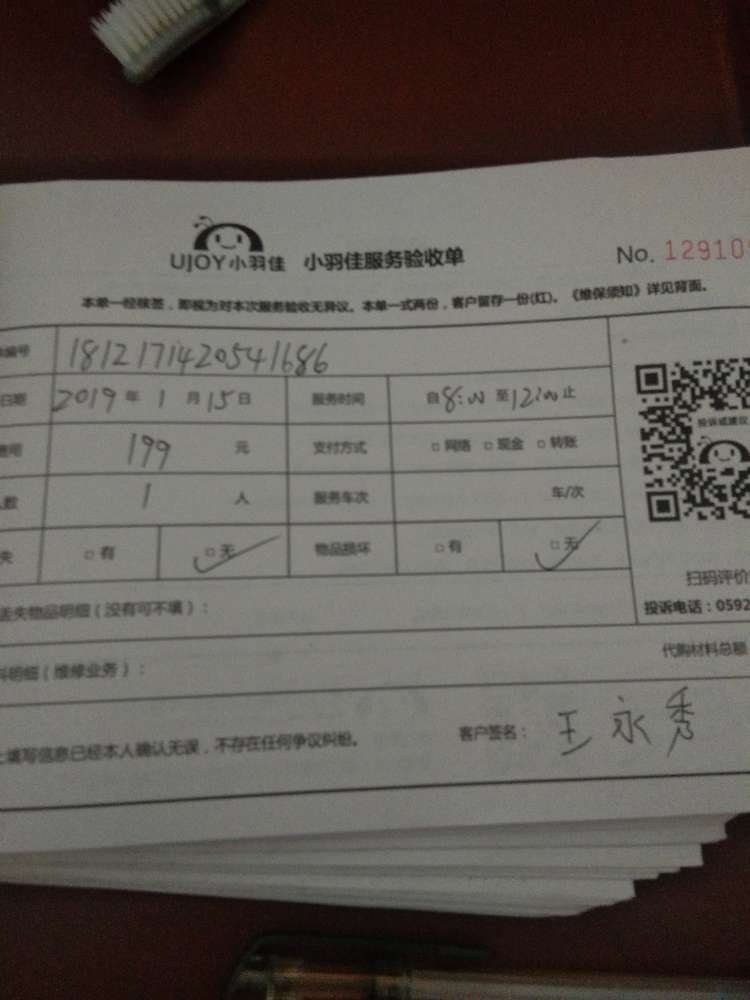 UJOY小羽佳 小羽佳服务验收单 No. 12910
本单一经核签，即视为对本次服务验收无异议。本单一式两份，客户留存一份(红)。《维保须知》详见背面。
编号 1812171420541686
日期 2019年1月15日 服务时间 自8:00至12:00止
费用 199元 支付方式 □网络 □现金 □转账
人数 1人 服务车次 车/次
失 □有 □无 物品损坏 □有 □无
投诉或建议
扫码评价
丢失物品明细（没有可不填）： 投诉电话：0592
料明细（维修业务）： 代购材料总额
上填写信息已经本人确认无误，不存在任何争议纠纷。 客户签名：王永秀